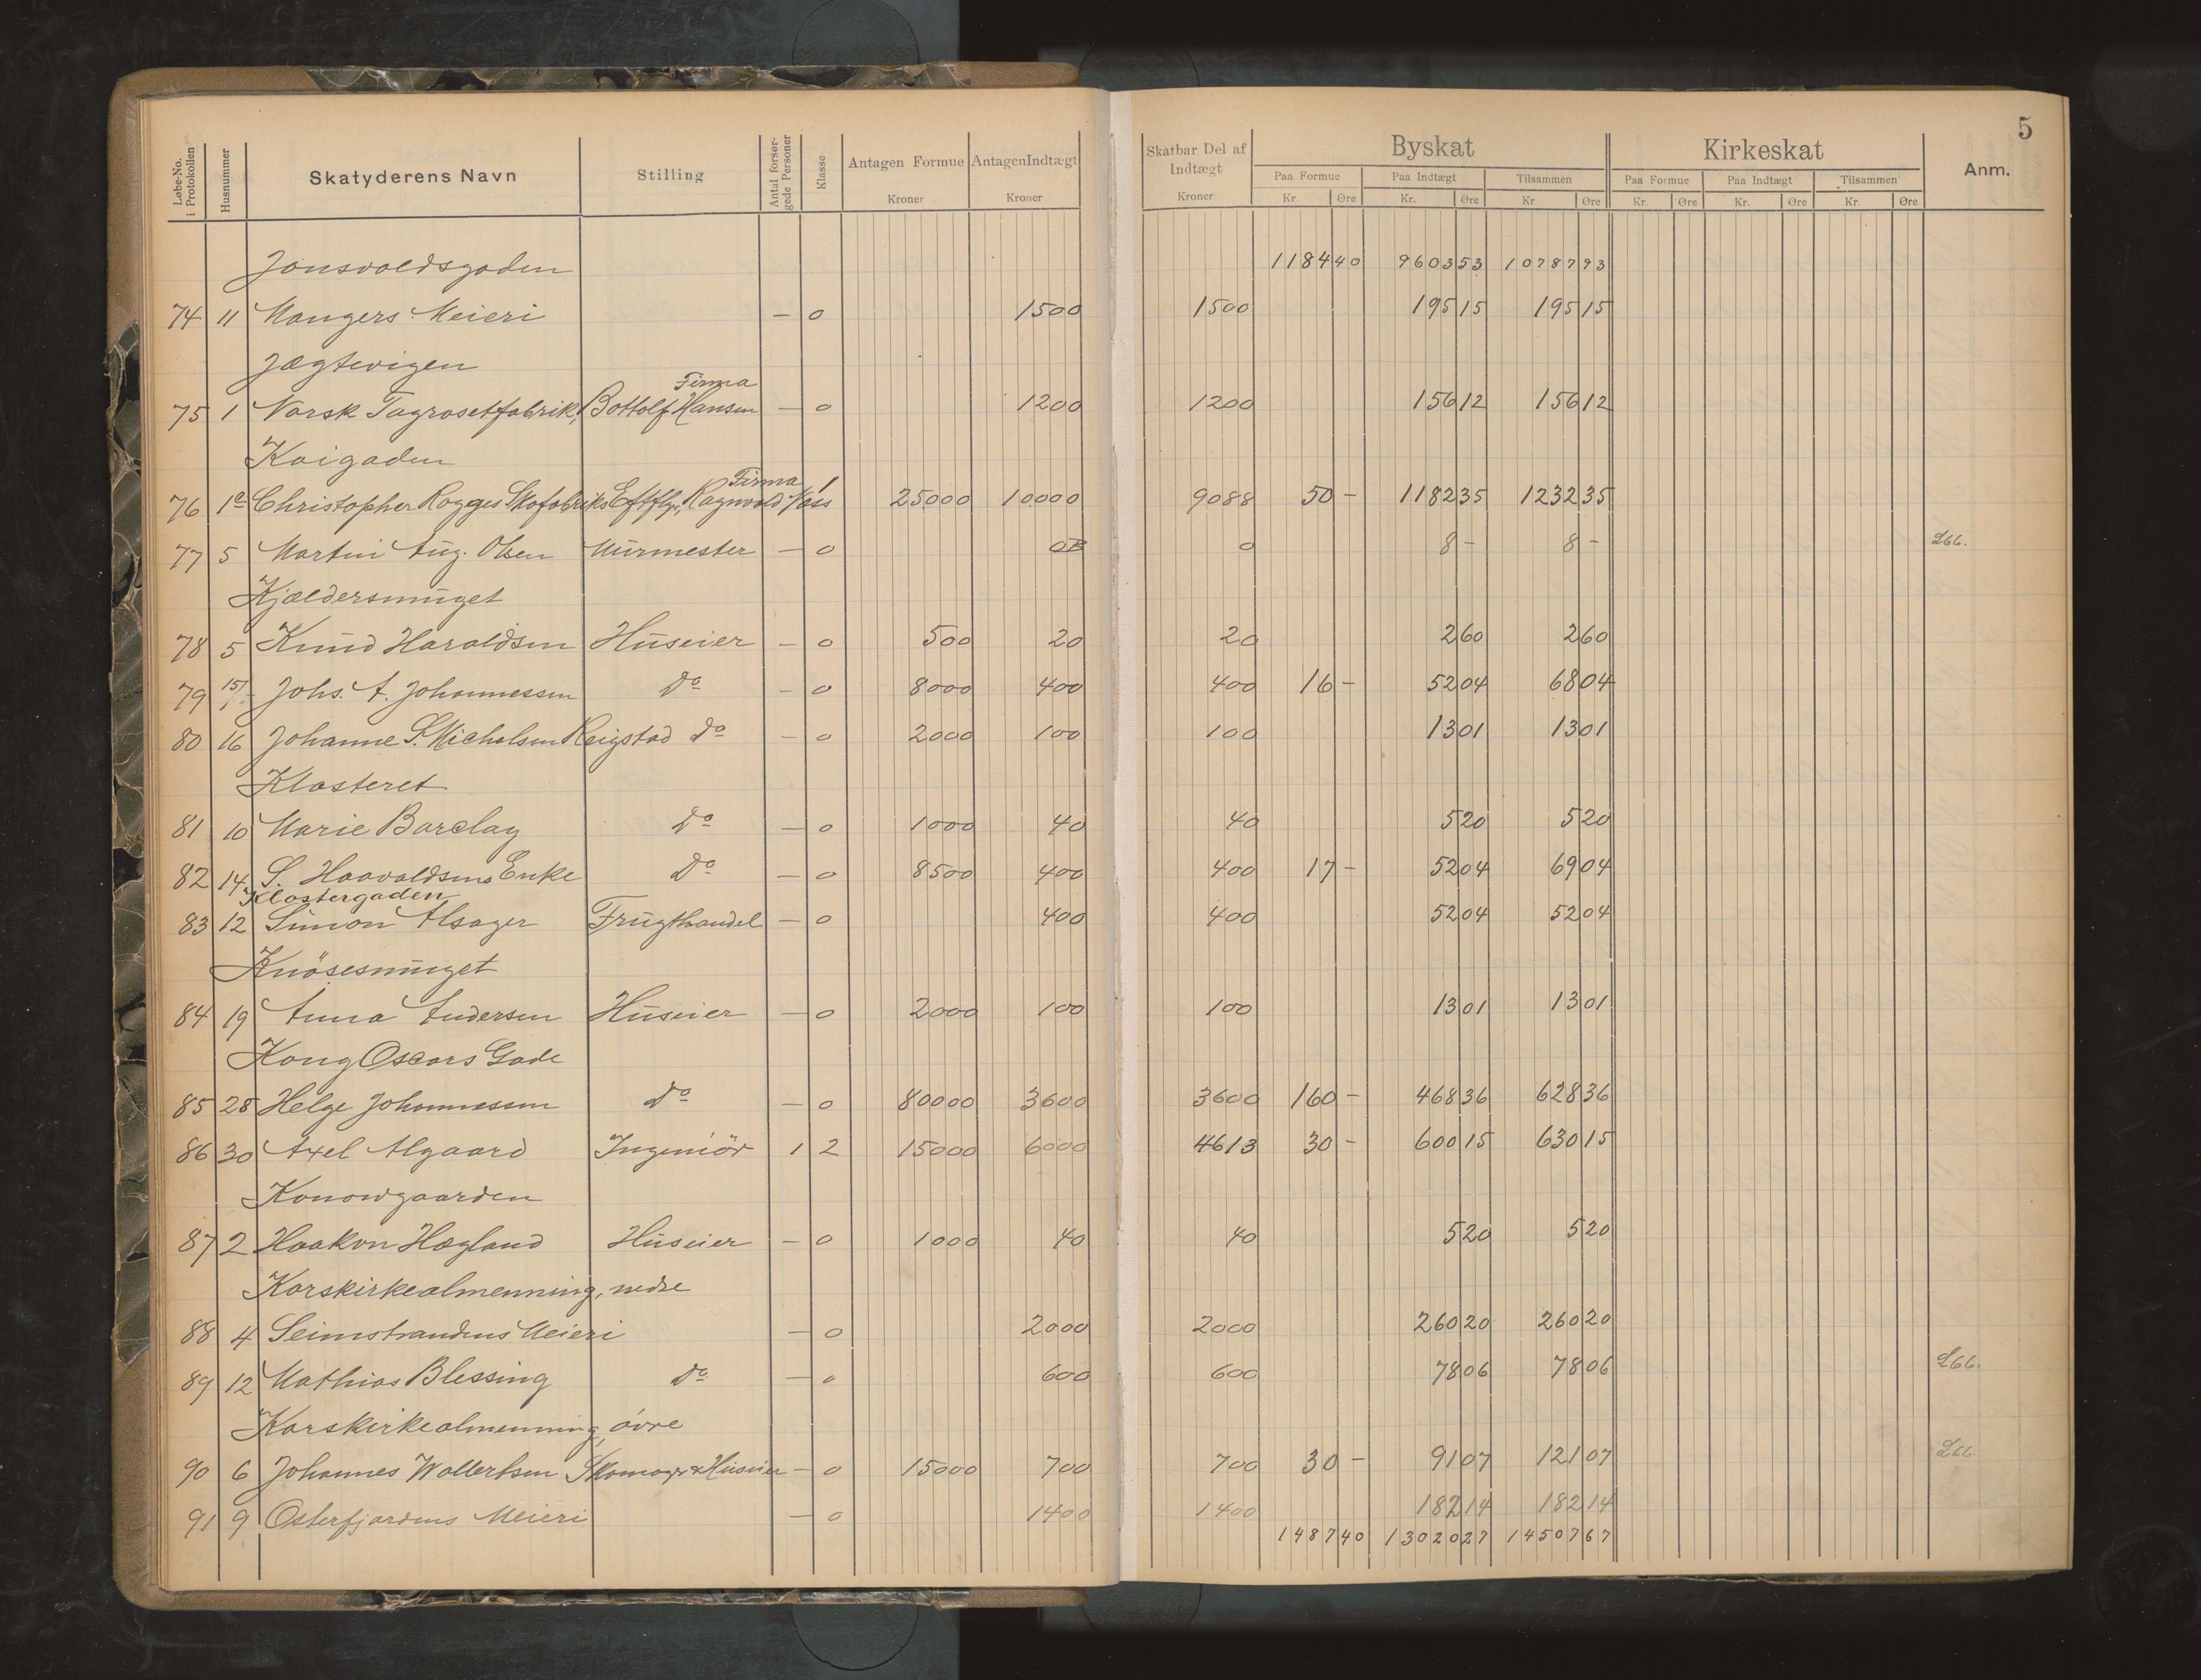 5
Løbe-No. i Protokollen Husnummer Skatyderens Navn Stilling Antal forsør-gede Personer Klasse Antagen Formue Kroner Antagen Indtægt Kroner Skatbar Del af Indtægt Kroner Byskat Paa Formue Kr. Øre Paa Indtægt Kr. Øre Tilsammen Kr Øre Kirkeskat Paa Formue Kr. Øre Paa Indtægt Kr. Øre Tilsammen Kr. Øre Anm.
Jonsvoldsgaden 1184 40 9603 53 10787 93
74 11 Mangers Meieri — 0 1500 1500 195 15 195 15
Jægtevigen
Firma
75 1 Norsk Tagrosetfabrik, Bottolf Hansen — 0 1200 1200 156 12 156 12
Kaigaden
Firma
76 1c Christopher Rogges Skofabriks Eftflgr, Ragnvald Vass 25000 10000 9088 50 — 1182 35 1232 35
77 5 Martin Aug. Olsen Murmester — 0 0 0 8 — 8 — L66.
Kjældersmuget
78 5 Knud Haraldsen Huseier — 0 500 20 20 2 60 2 60
79 15/7 Johs. A. Johannessen Do — 0 8000 400 400 16 — 52 04 68 04
80 16 Johanne S. Michelsen Reigstad do — 0 2000 100 100 13 01 13 01
Klosteret
81 10 Marie Barclay Do — 0 1000 40 40 5 20 5 20
82 14 S. Haavaldsens Enke Do — 0 8500 400 400 17 — 52 04 69 04
Klostergaden
83 12 Simon Alsager Frugthandel — 0 400 400 52 04 52 04
Knösesmuget
84 19 Anna Andersen Huseier — 0 2000 100 100 13 01 13 01
Kong Oscars Gade
85 28 Helge Johannessen do — 0 80000 3600 3600 160 — 468 36 628 36
86 30 Axel Algaard Ingeniör 1 2 15000 6000 4613 30 — 600 15 630 15
Konowgaarden
87 2 Haakon Hægland Huseier — 0 1000 40 40 5 20 5 20
Korskirkealmenning, nedre
88 4 Seimstrandens Meieri — 0 2000 2000 260 20 260 20
89 12 Mathias Blessing do — 0 600 600 78 06 78 06 L66.
Korskirkealmenning, övre
90 6 Johannes Wollertsen Skomager & Huseier — 0 15000 700 700 30 — 91 07 121 07 L66
91 9 Osterfjordens Meieri — 0 1400 1400 182 14 182 14
1487 40 13020 27 14507 67